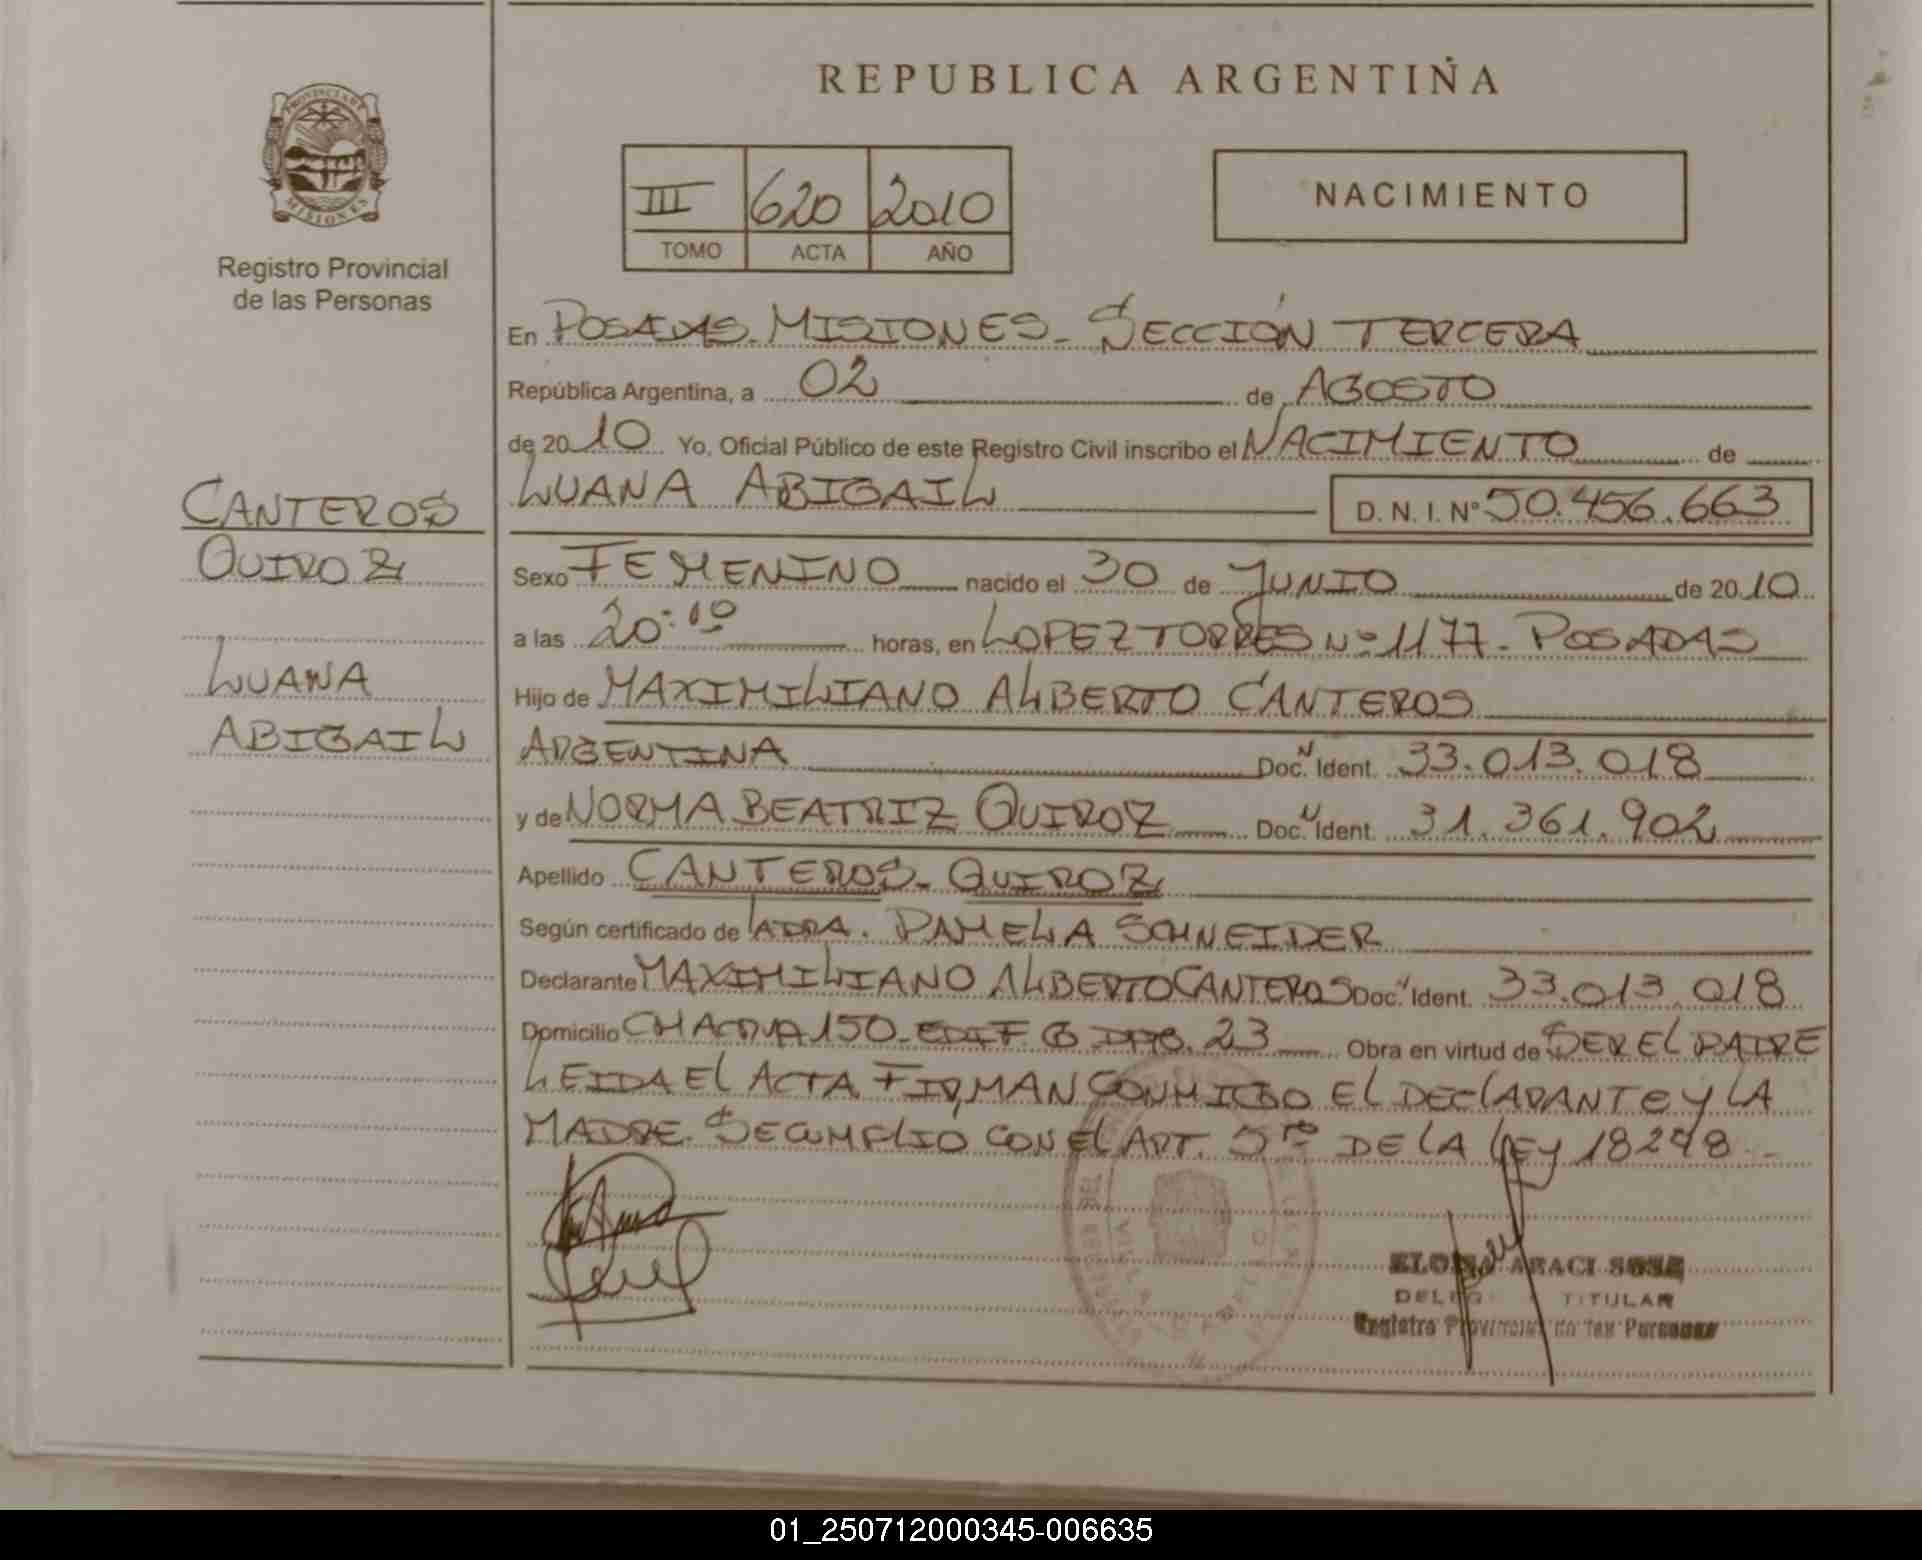 REPUBLICA ARGENTINA
PROVINCIA DE
MISIONES
Registro Provincial
de las Personas
III 620 2010
TOMO ACTA AÑO
NACIMIENTO
En POSADAS. MISIONES - SECCIÓN TERCERA
República Argentina, a 02 de AGOSTO
de 2010 Yo, Oficial Público de este Registro Civil inscribo el NACIMIENTO de
LUANA ABIGAIL D. N. I. Nº 50.456.663
CANTEROS
QUIROZ
LUANA
ABIGAIL
Sexo FEMENINO nacido el 30 de JUNIO de 2010
a las 20:10 horas, en LOPEZ TORRES Nº 1177 - POSADAS
Hijo de MAXIMILIANO ALBERTO CANTEROS
ARGENTINA Doc. N Ident. 33.013.018
y de NORMA BEATRIZ QUIROZ Doc. N Ident. 31.361.902
Apellido CANTEROS - QUIROZ
Según certificado de LADRA. PAMELA SCHNEIDER
Declarante MAXIMILIANO ALBERTO CANTEROS Doc. N Ident. 33.013.018
Domicilio CHACRA 150 - EDIF. 6 DPTO. 23 Obra en virtud de SER EL PADRE
LEIDA EL ACTA FIRMAN CONMIGO EL DECLARANTE Y LA
MADRE. SE CUMPLIO CON EL ART. 5to DE LA LEY 18248
ARACI SOSA
TITULAR
Registro Provincial de las Personas
01_250712000345-006635